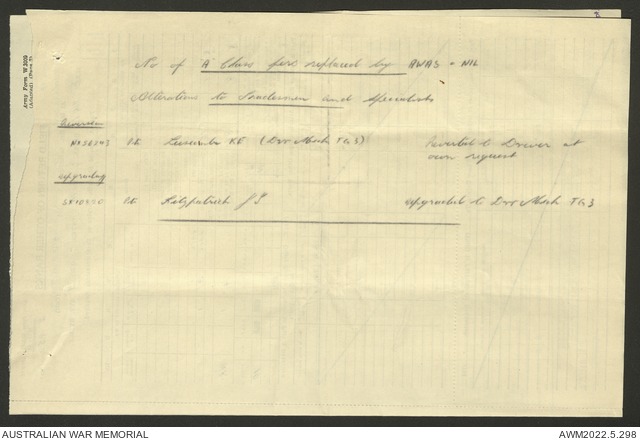 Army Form W 3009
(Adapted) (Plate 3)
No of "A" Class pers replaced by AWAS - NIL
Alterations to Tradesmen and Specialists
Reversion
Pte (Dvr Mech TG 3) Reverted to Driver at
own request
Upgrading
Pte Kilpatrick upgraded to Dvr Mech TG 3
AUSTRALIAN WAR MEMORIAL
AWM2022.5.298